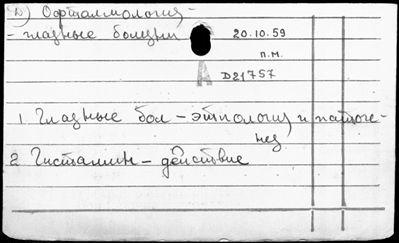 Д) Офталмология -
- глазные болезни
20.10.59
п.м.
А D21757
1. Глазные бол - этиология и патоге-
нез
2 Гистамин - действие